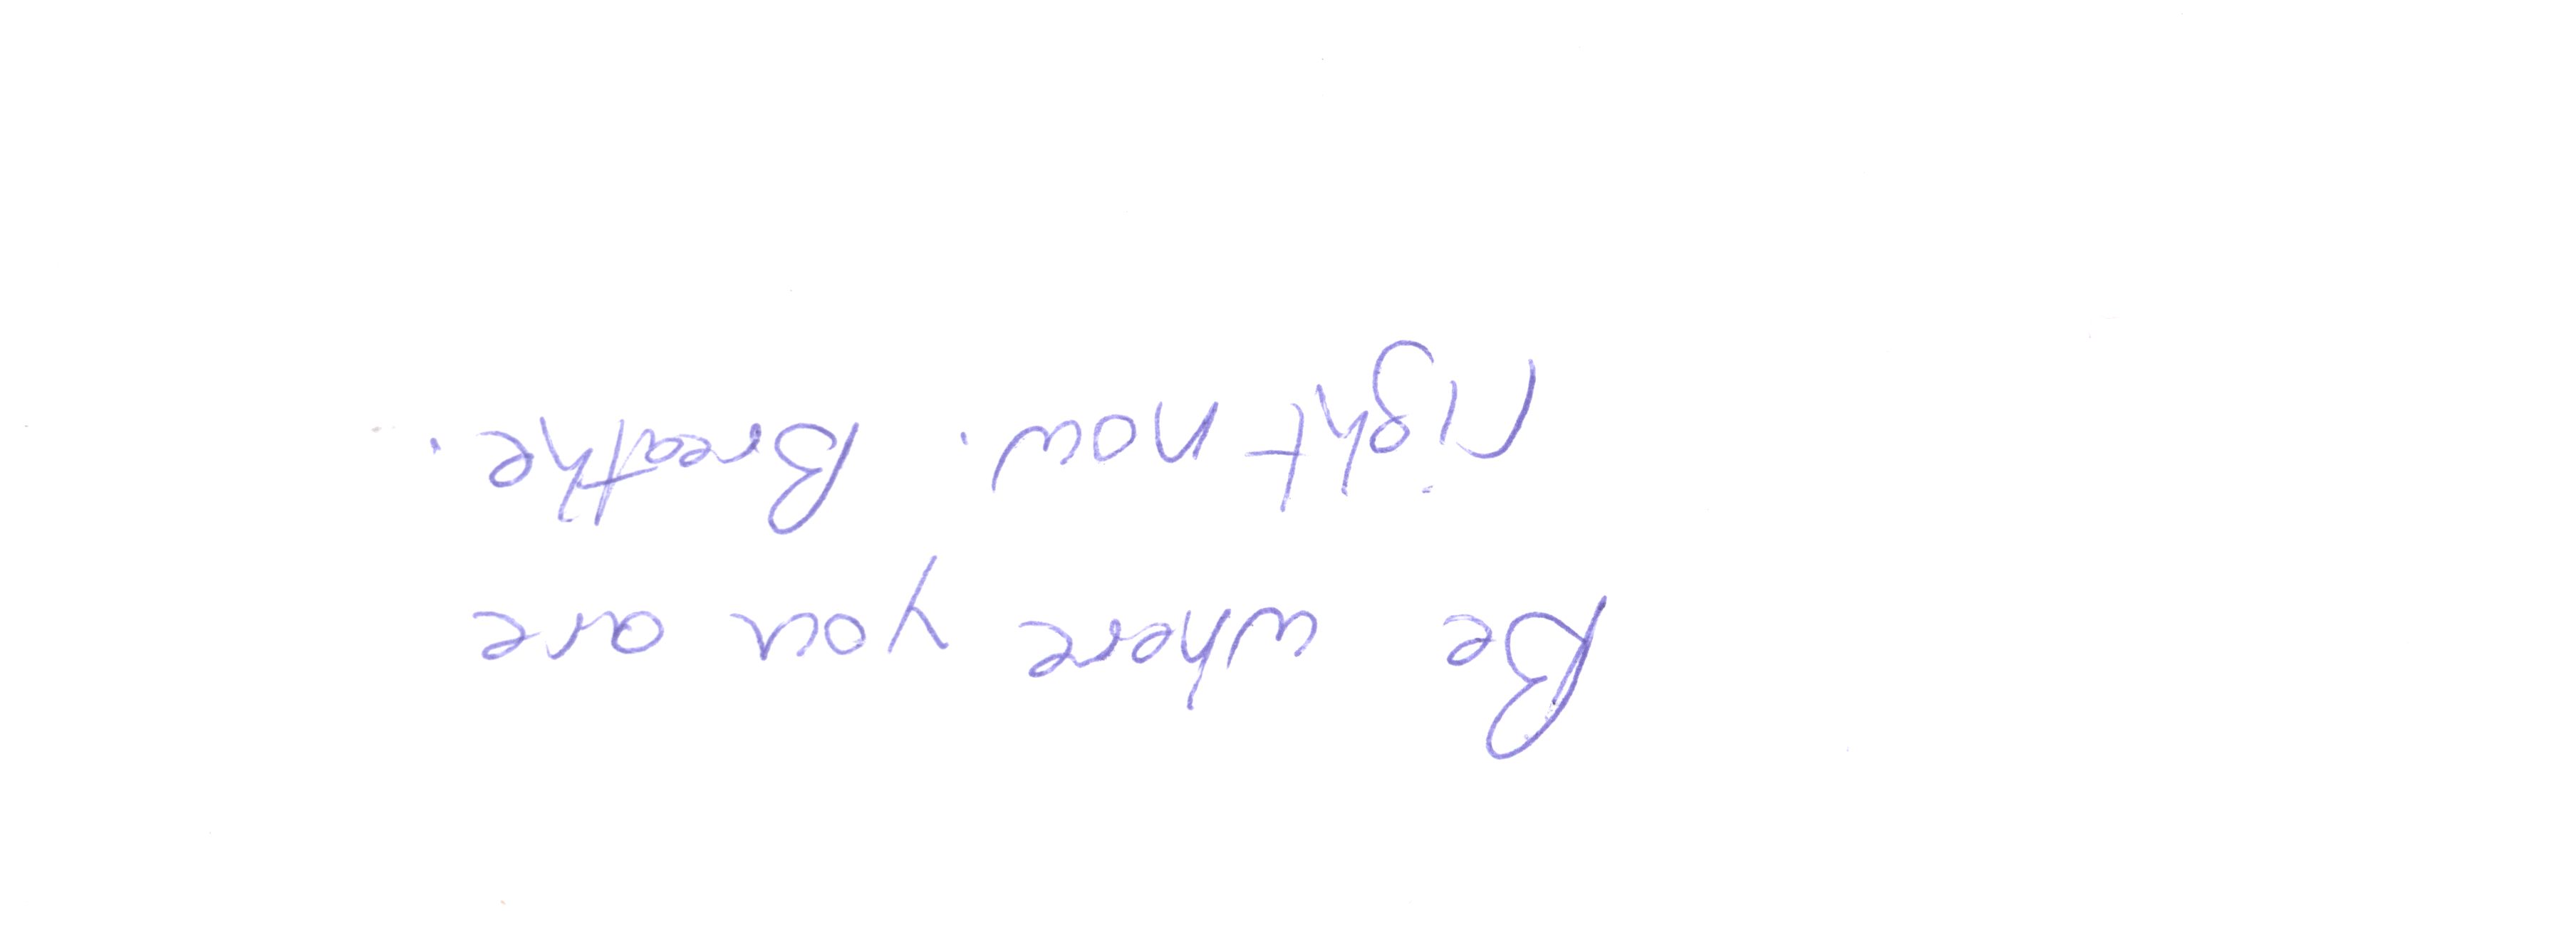 Be where you are
right now. Breathe.